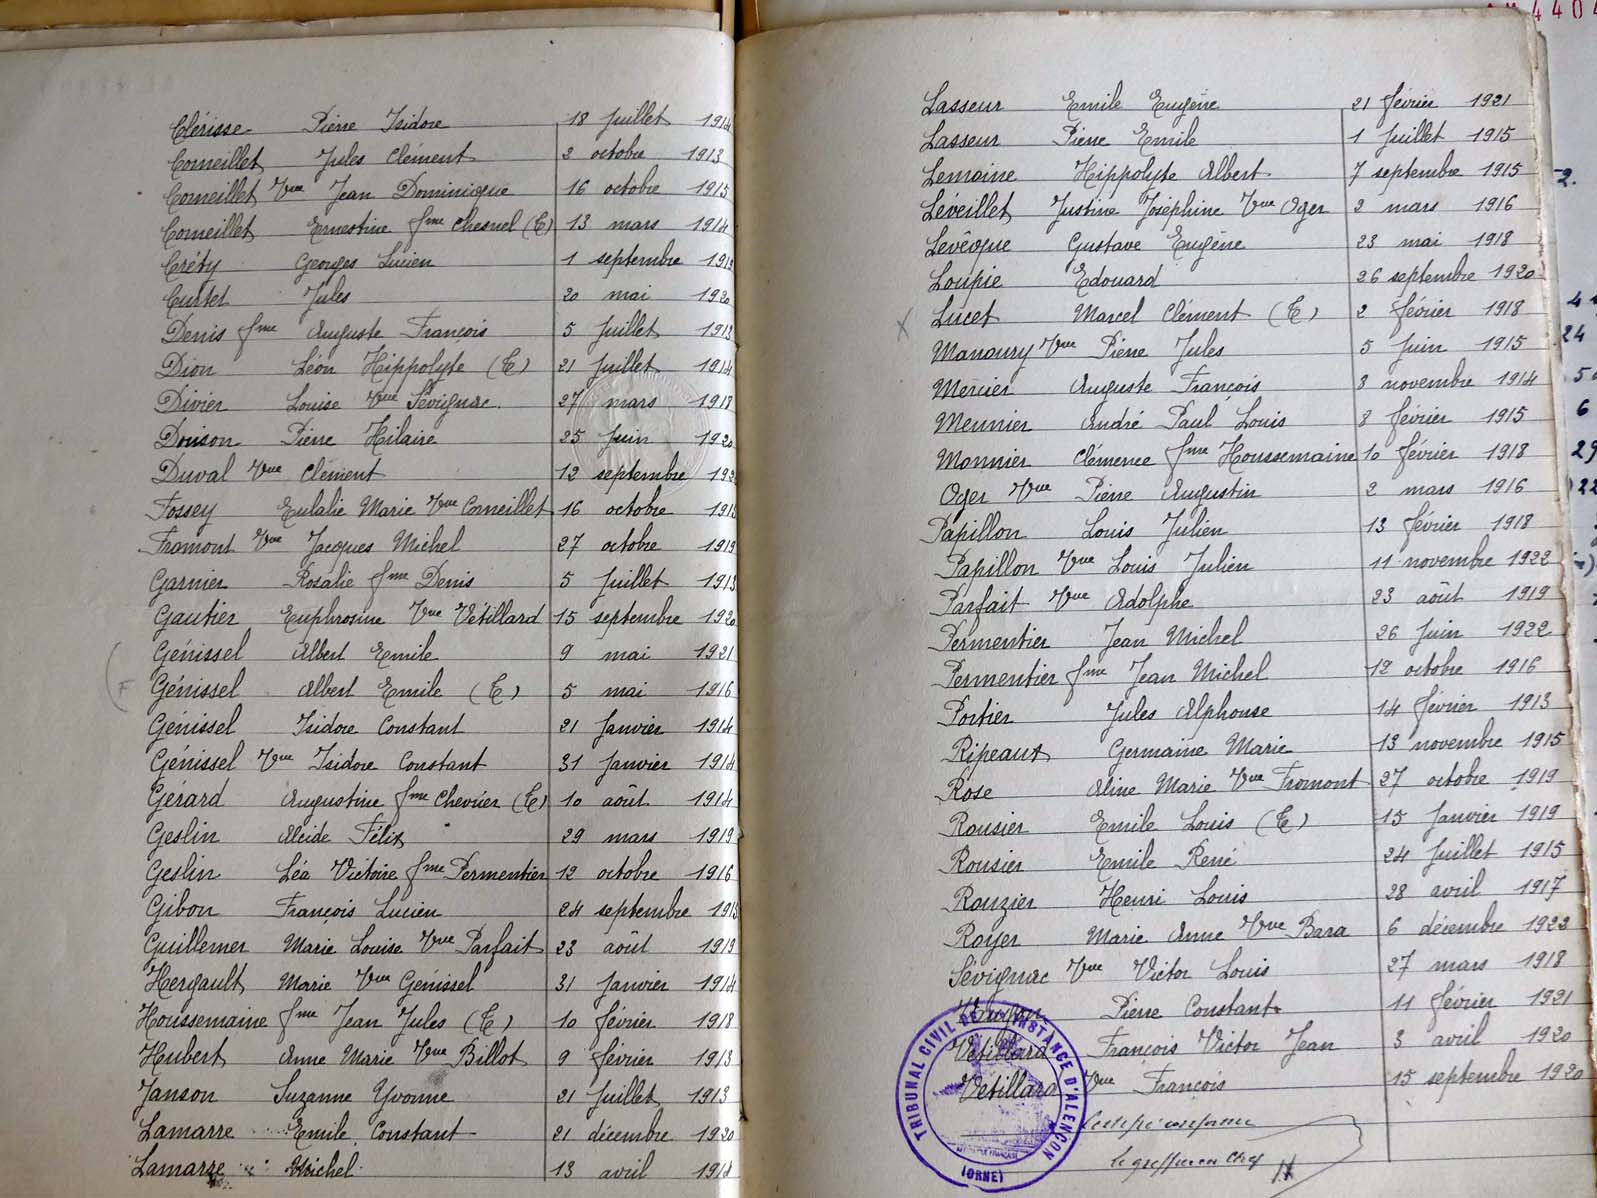 Clérisse Pierre Isidore 18 Juillet 1914
Corneillet Jules Clément 2 octobre 1913
Corneillet Vve Jean Dominique 16 octobre 1915
Corneillet Ernestine fme Chesnel (E) 13 mars 1914
Créty Georges Lucien 1 septembre
Curtet Jules 20 mai 1920
Denis fme Auguste François 5 Juillet 1913
Dion Léon Hippolyte (E) 21 Juillet 1914
Divier Louise Vve Sévignac 27 mars 1918
Doüson Pierre Hilaire 25 Juin 1920
Duval Vve Clément 12 septembre
Fossey Eulalie Marie Vve Corneillet 16 octobre 1915
Fromont Vve Jacques Michel 27 octobre 1919
Garnier Rosalie fme Denis 5 Juillet 1913
Gautier Euphrosine Vve Vétillard 15 septembre 1920
Génissel Albert Emile 9 mai 1921
F Génissel Albert Emile (E) 5 mai 1916
Génissel Isidore Constant 21 Janvier 1914
Génissel Vve Isidore Constant 31 Janvier 1914
Gérard Augustine fme Chevrier (E) 10 août 1914
Geslin Alcide Félix 29 mars 1919
Geslin Léa Victoire fme Permentier 12 octobre 1916
Gibon François Lucien 24 septembre
Guillemer Marie Louise Vve Parfait 23 août 1919
Hergault Marie Vve Génissel 31 Janvier 1914
Houssemaine fme Jean Jules (E) 10 février 1918
Hubert Anne Marie Vve Billot 9 février 1913
Janson Suzanne Yvonne 21 Juillet 1913
Lamarre Emile Constant 21 décembre 1920
Lamarre Michel 13 avril 1918
4404
Lasseur Emile Eugène 21 février 1921
Lasseur Pierre Emile 1 Juillet 1915
Lemoine Hippolyte Albert 7 septembre 1915
Leveillet Justine Joséphine Vve Oger 2 mars 1916
Levêque Gustave Eugène 23 mai 1918
Loupie Edouard 26 septembre 1920
X Lucet Marcel Clément (E) 2 février 1918
Manoury Vve Pierre Jules 5 Juin 1915
Mercier Auguste François 3 novembre 1914
Meunier André Paul Louis 8 février 1915
Monnier Clémence fme Houssemaine 10 février 1918
Oger Vve Pierre Augustin 2 mars 1916
Papillon Louis Julien 13 février 1918
Papillon Vve Louis Julien 11 novembre 1922
Parfait Vve Adolphe 23 août 1919
Permentier Jean Michel 26 Juin 1922
Permentier fme Jean Michel 12 octobre 1916
Portier Jules Alphonse 14 février 1913
Ripeaux Germaine Marie 13 novembre 1915
Rose Aline Marie Vve Fromont 27 octobre 1919
Rousier Emile Louis (E) 15 Janvier 1919
Rousier Emile René 24 Juillet 1915
Rouzier Henri Louis 28 avril 1917
Royer Marie Anne Vve Bara 6 décembre 1922
Sévignac Vve Victor Louis 27 mars 1918
Pierre Constant 11 février 1921
Vétillard François Victor Jean 3 avril 1920
Vétillard Vve François 15 septembre 1920
Le greffier en chef
TRIBUNAL CIVIL DE 1ère INSTANCE D'ALENÇON
(ORNE)